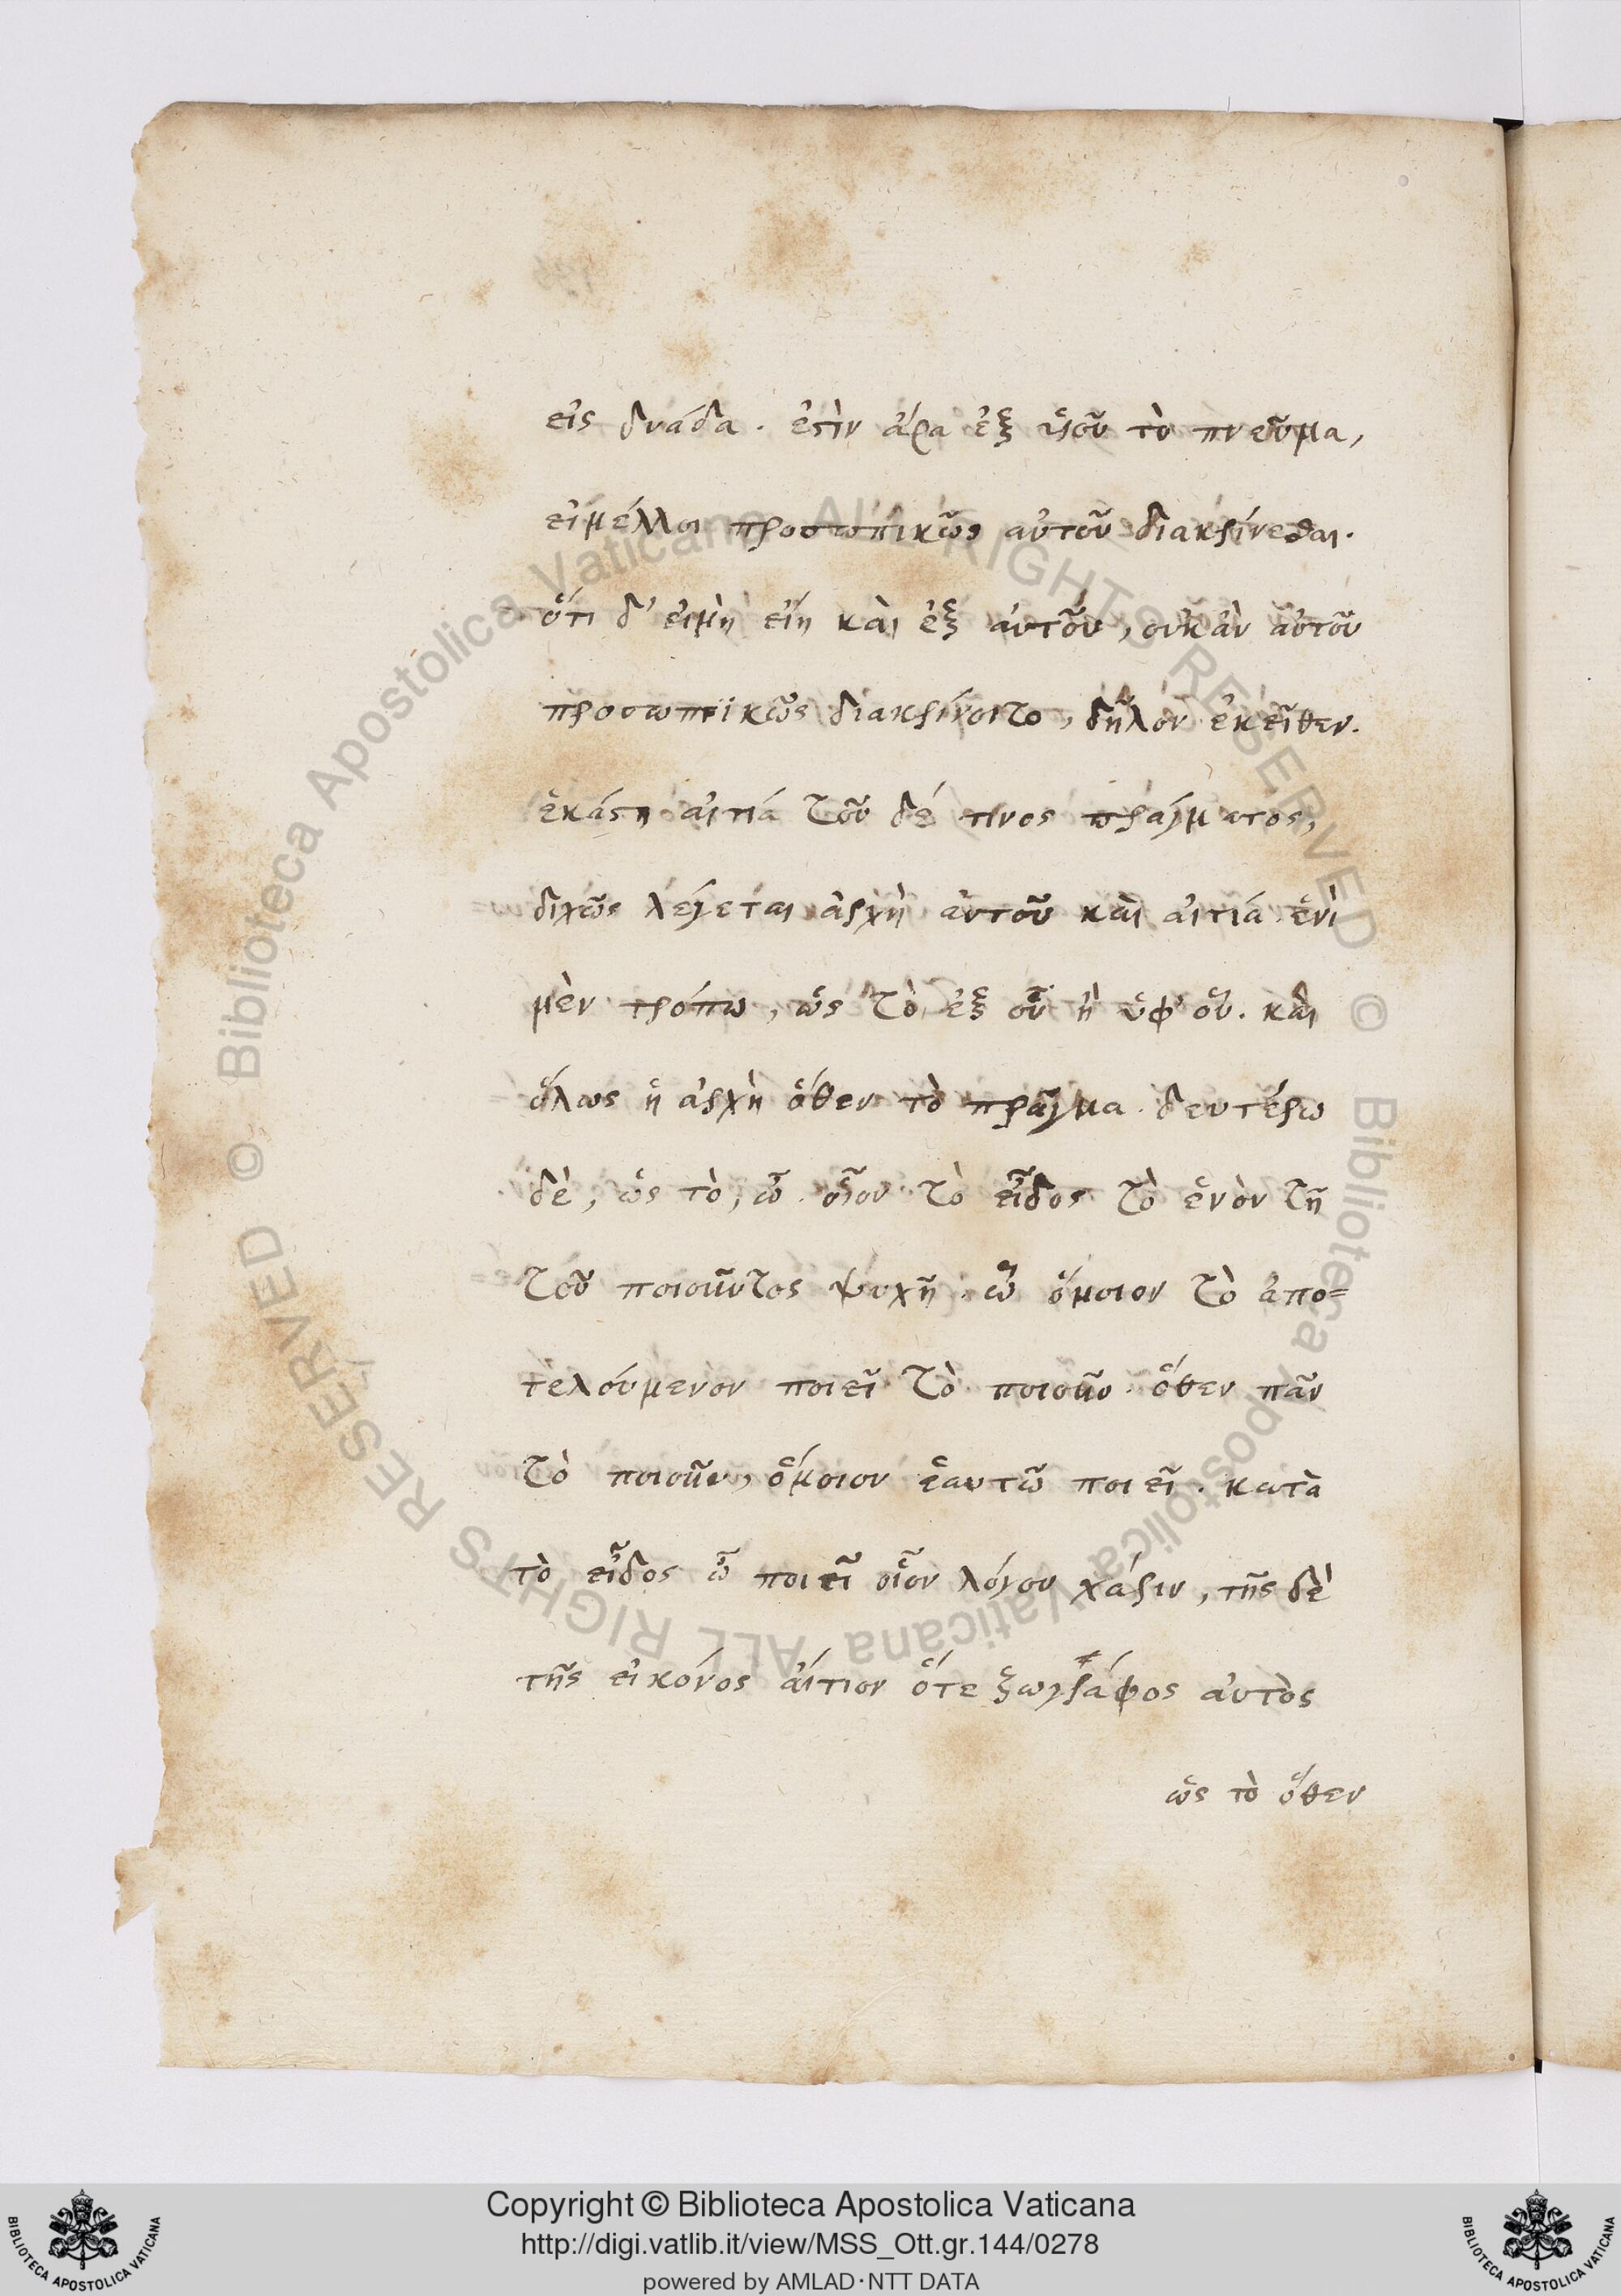 εἰς δυάδα. ἐστὶν ἄρα ἐξ ὑιοῦ τὸ πνεῦμα,
εἰμέλλοι προσωπικῶς αὐτοῦ διακρίνεσθαι.
ὅτι δ' εἰμὴ εἴη καὶ ἐξ αὐτοῦ, οὐκἂν αὐτοῦ
προσωπικῶς διακρίνοιτο, δῆλον ἐκεῖθεν.
ἑκάστη αἰτιά τοῦ δέ τινος πράγματος,
διχῶς λέγεται ἀρχὴ αὐτοῦ καὶ αἰτιά. ἑνὶ
μὲν τρόπω, ὡς τὸ ἐξ οὗ ἢ ὑφ' οὗ. καὶ
ὅλως ἡ ἀρχὴ ὅθεν τὸ πρᾶγμα. δευτέρω
δὲ, ὡς τὸ, ὧ. οἷον τὸ εἶδος τὸ ἐνὸν τῆ
τοῦ ποιοῦντος ψυχῆ. ὧ ὅμοιον τὸ ἀπο=
τελούμενον ποιεῖ τὸ ποιοῦν. ὅθεν πᾶν
τὸ ποιοῦν, ὅμοιον ἑαυτῶ ποιεῖ. κατὰ
τὸ εἶδος ὧ ποιεῖ οἷον λόγου χάριν, τῆς δὲ
τῆς εἰκόνος αἴτιον ὅτε ζωγράφος αὐτὸς
ὡς τὸ ὅθεν
Biblioteca Apostolica Vaticana ALL RIGHTS RESERVED © Biblioteca Apostolica Vaticana ALL RIGHTS RESERVED ©
Copyright © Biblioteca Apostolica Vaticana
http://digi.vatlib.it/view/MSS_Ott.gr.144/0278
powered by AMLAD·NTT DATA
BIBLIOTECA APOSTOLICA VATICANA
BIBLIOTECA APOSTOLICA VATICANA